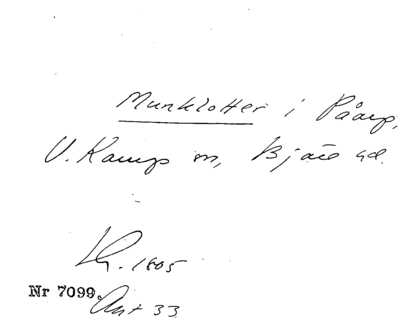 Munklotter i Påarp,
V. Karup sn, Bjäre hd.
Kr. 1805
Nr 7099.
Ant 33